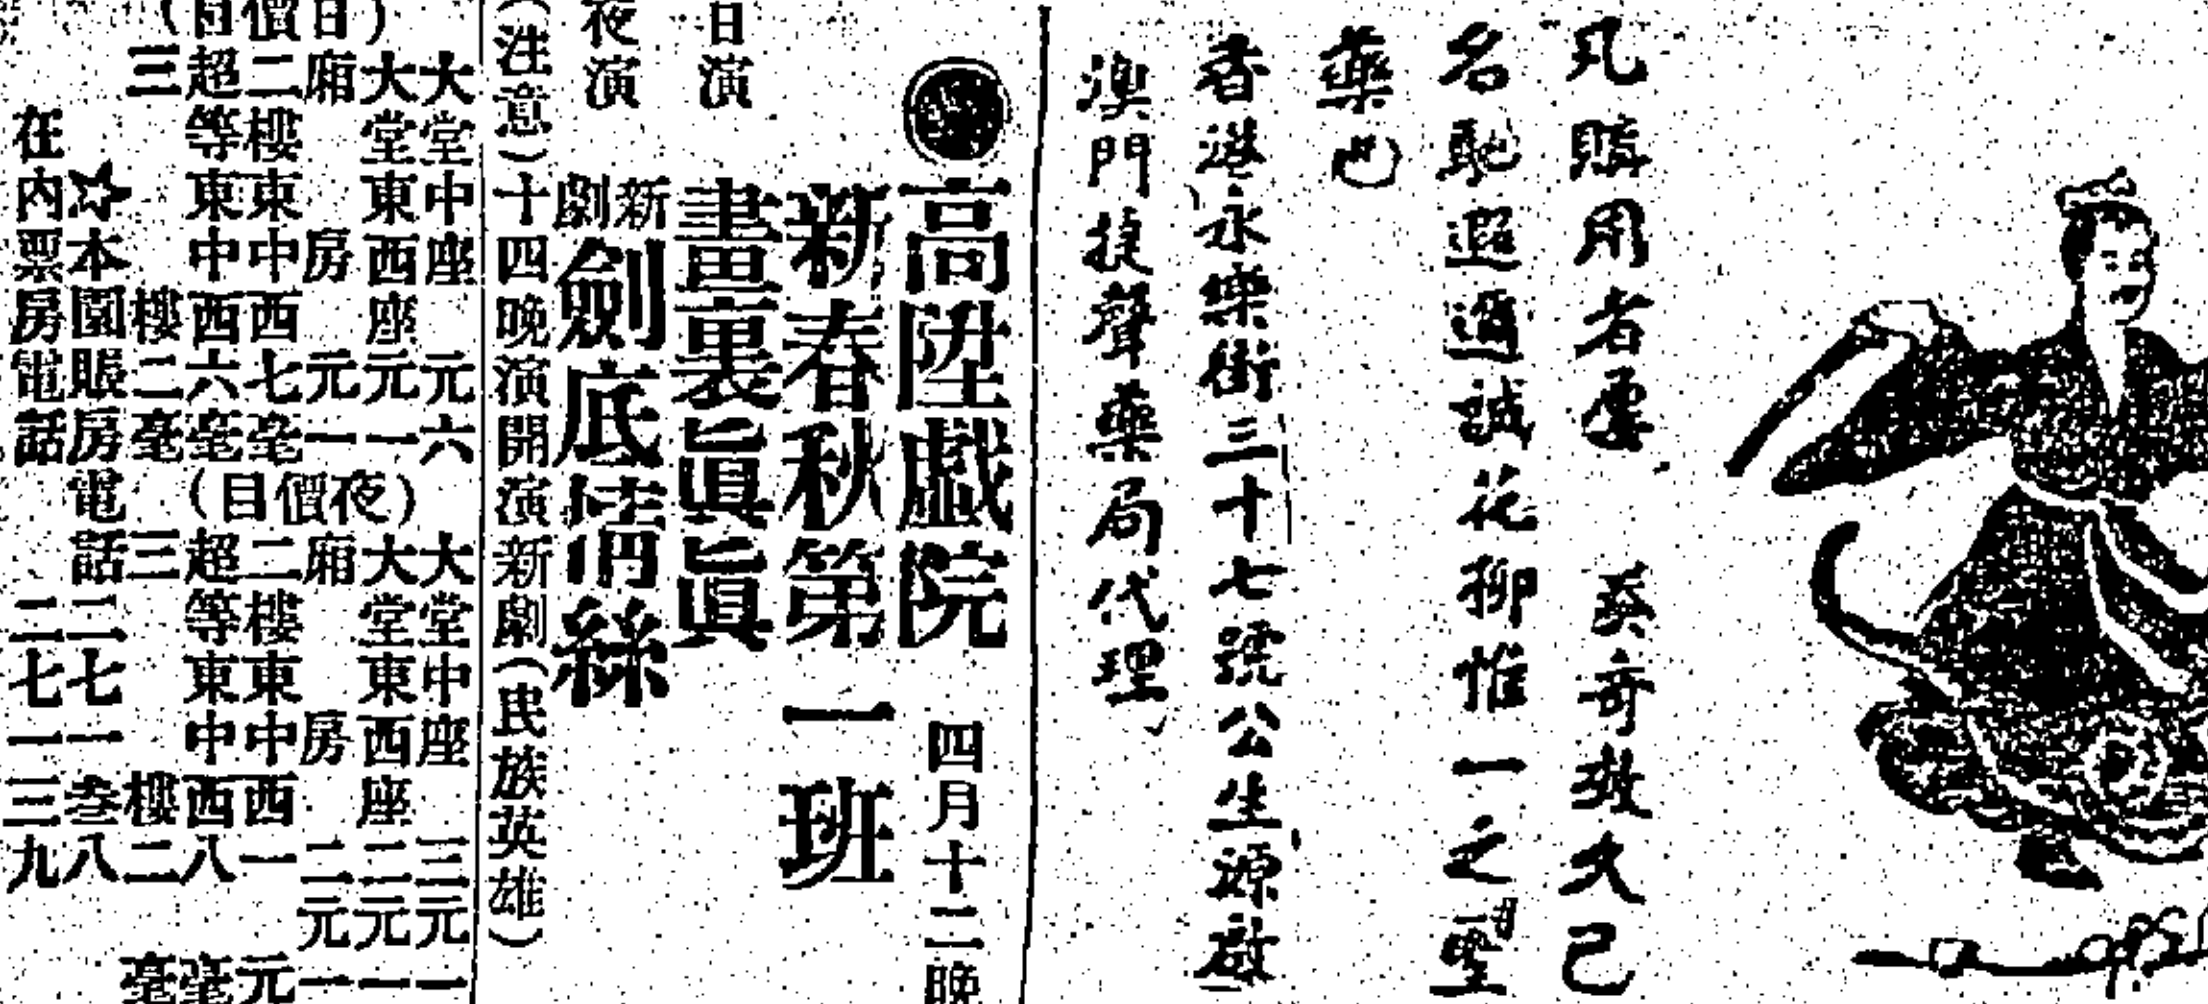 凡購用者屢 奏奇效久已
名馳遐邇誠花柳惟一之聖
藥也
香港永樂街三十七號公生源啟
澳門捷聲藥局代理
高陞戲院 四月十二晚
新春秋第一班
日演 畫裏眞眞
夜演 新劇 劍底情絲
(注意)十四晚演開演新劇(民族英雄)
(日價目)
大堂中座 元六
大堂東西座元一
廂房 元一
二樓東中西七毫
超等東中西六毫
三樓二毫
(夜價目)
大堂中座 三元一
大堂東西座二元一
廂房 二元一
二樓東中西一元
超等東中西八毫
三樓二毫
☆本園賬房電話二七一叁八
在內票房電話二七一三九